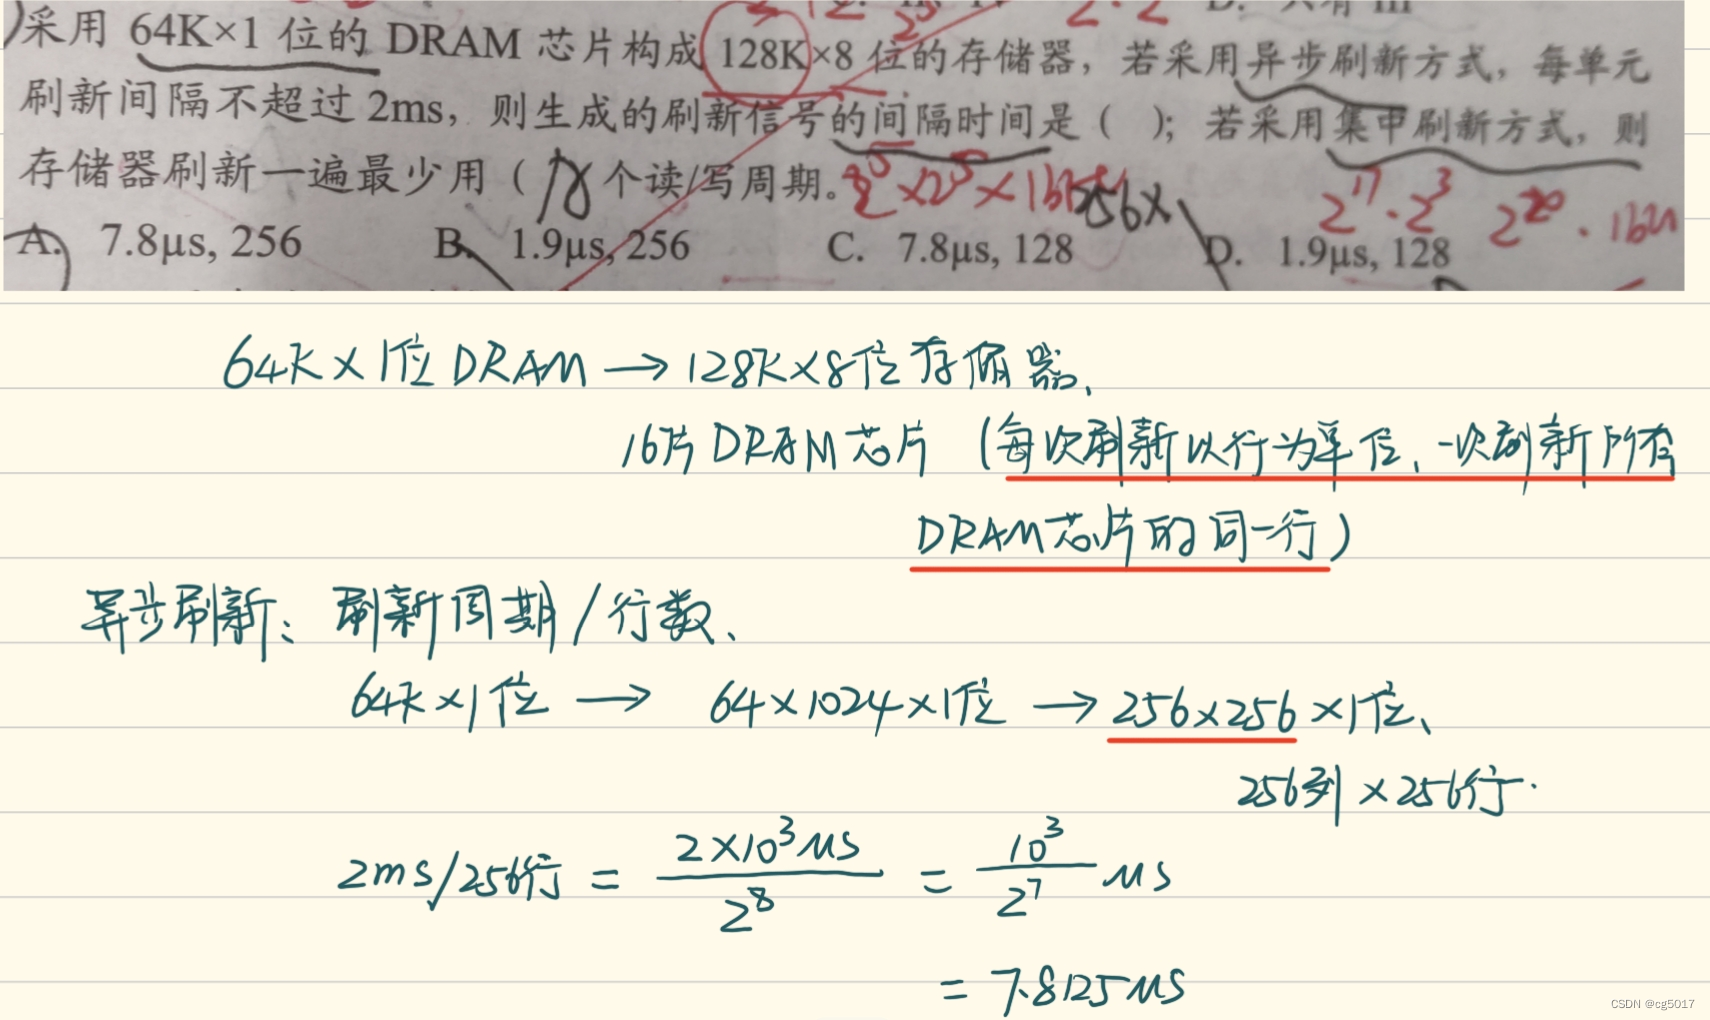 采用 64K×1 位的 DRAM 芯片构成 128K×8 位的存储器，若采用异步刷新方式，每单元
刷新间隔不超过 2ms，则生成的刷新信号的间隔时间是（ ）；若采用集中刷新方式，则
存储器刷新一遍最少用（ ）个读/写周期。
2^17·2^3
256×
A. 7.8μs, 256 B. 1.9μs, 256 C. 7.8μs, 128 D. 1.9μs, 128
64K×1位DRAM→128K×8位存储器、
16片DRAM芯片（每次刷新以行为单位、一次刷新所有
DRAM芯片的同一行）
异步刷新：刷新周期/行数、
64K×1位 → 64×1024×1位 → 256×256×1位、
256列×256行.
2ms/256行 = 2×10^3μs / 2^8 = 10^3 / 2^7 μs
= 7.8125μs
CSDN @cg5017